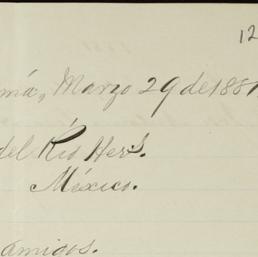 12
má, Marzo 29 de 1881
del Río Hers.
México.
amigos.